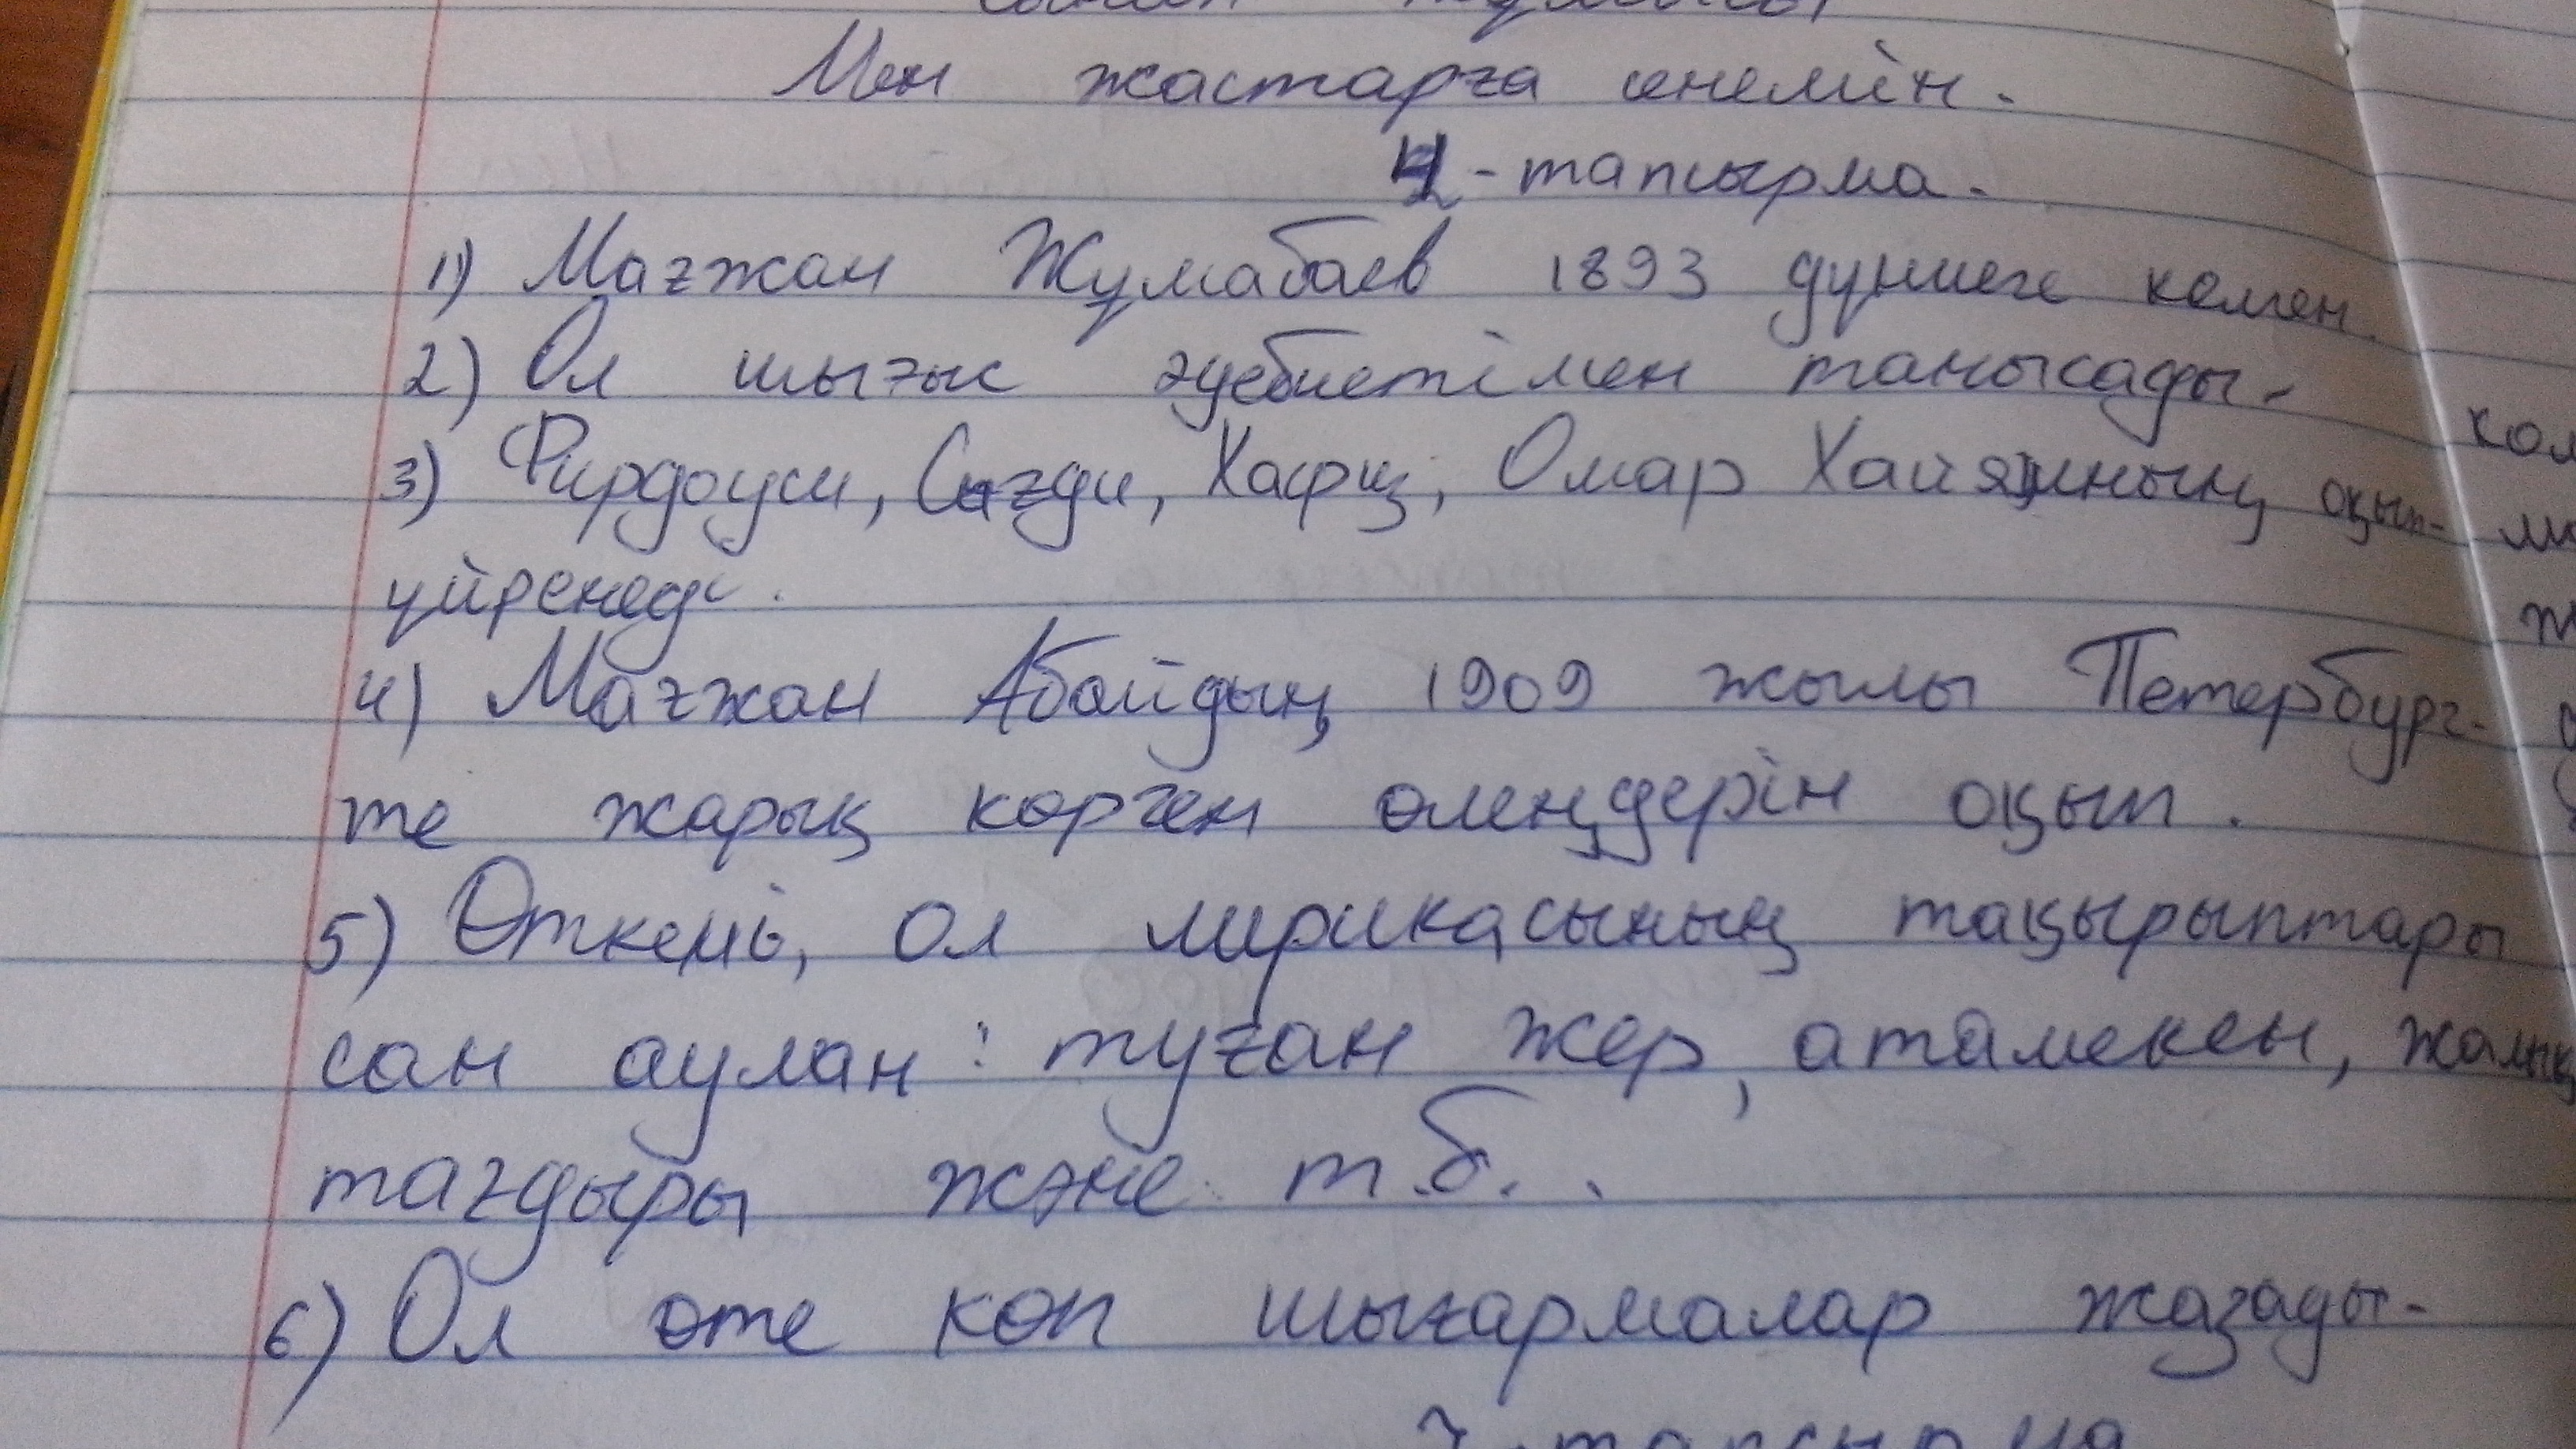 Мен жастарға сенемін.
4-тапсырма.
1) Мағжан Жұмабаев 1893 дүниеге келген.
2) Ол шығыс әдебиетімен танысады.
3) Фирдоуси, Сағди, Хафиз, Омар Хайямның оқып-
үйренеді.
4) Мағжан Абайдың 1909 жылы Петербург-
те жарық көрген өлеңдерін оқып.
5) Өткені, ол лирикасының тақырыптары
сан аулан: туған жер, атамекен, жалық
тағдыры және т.б..
6) Ол өте көп шығармалар жазады.
тапсырма